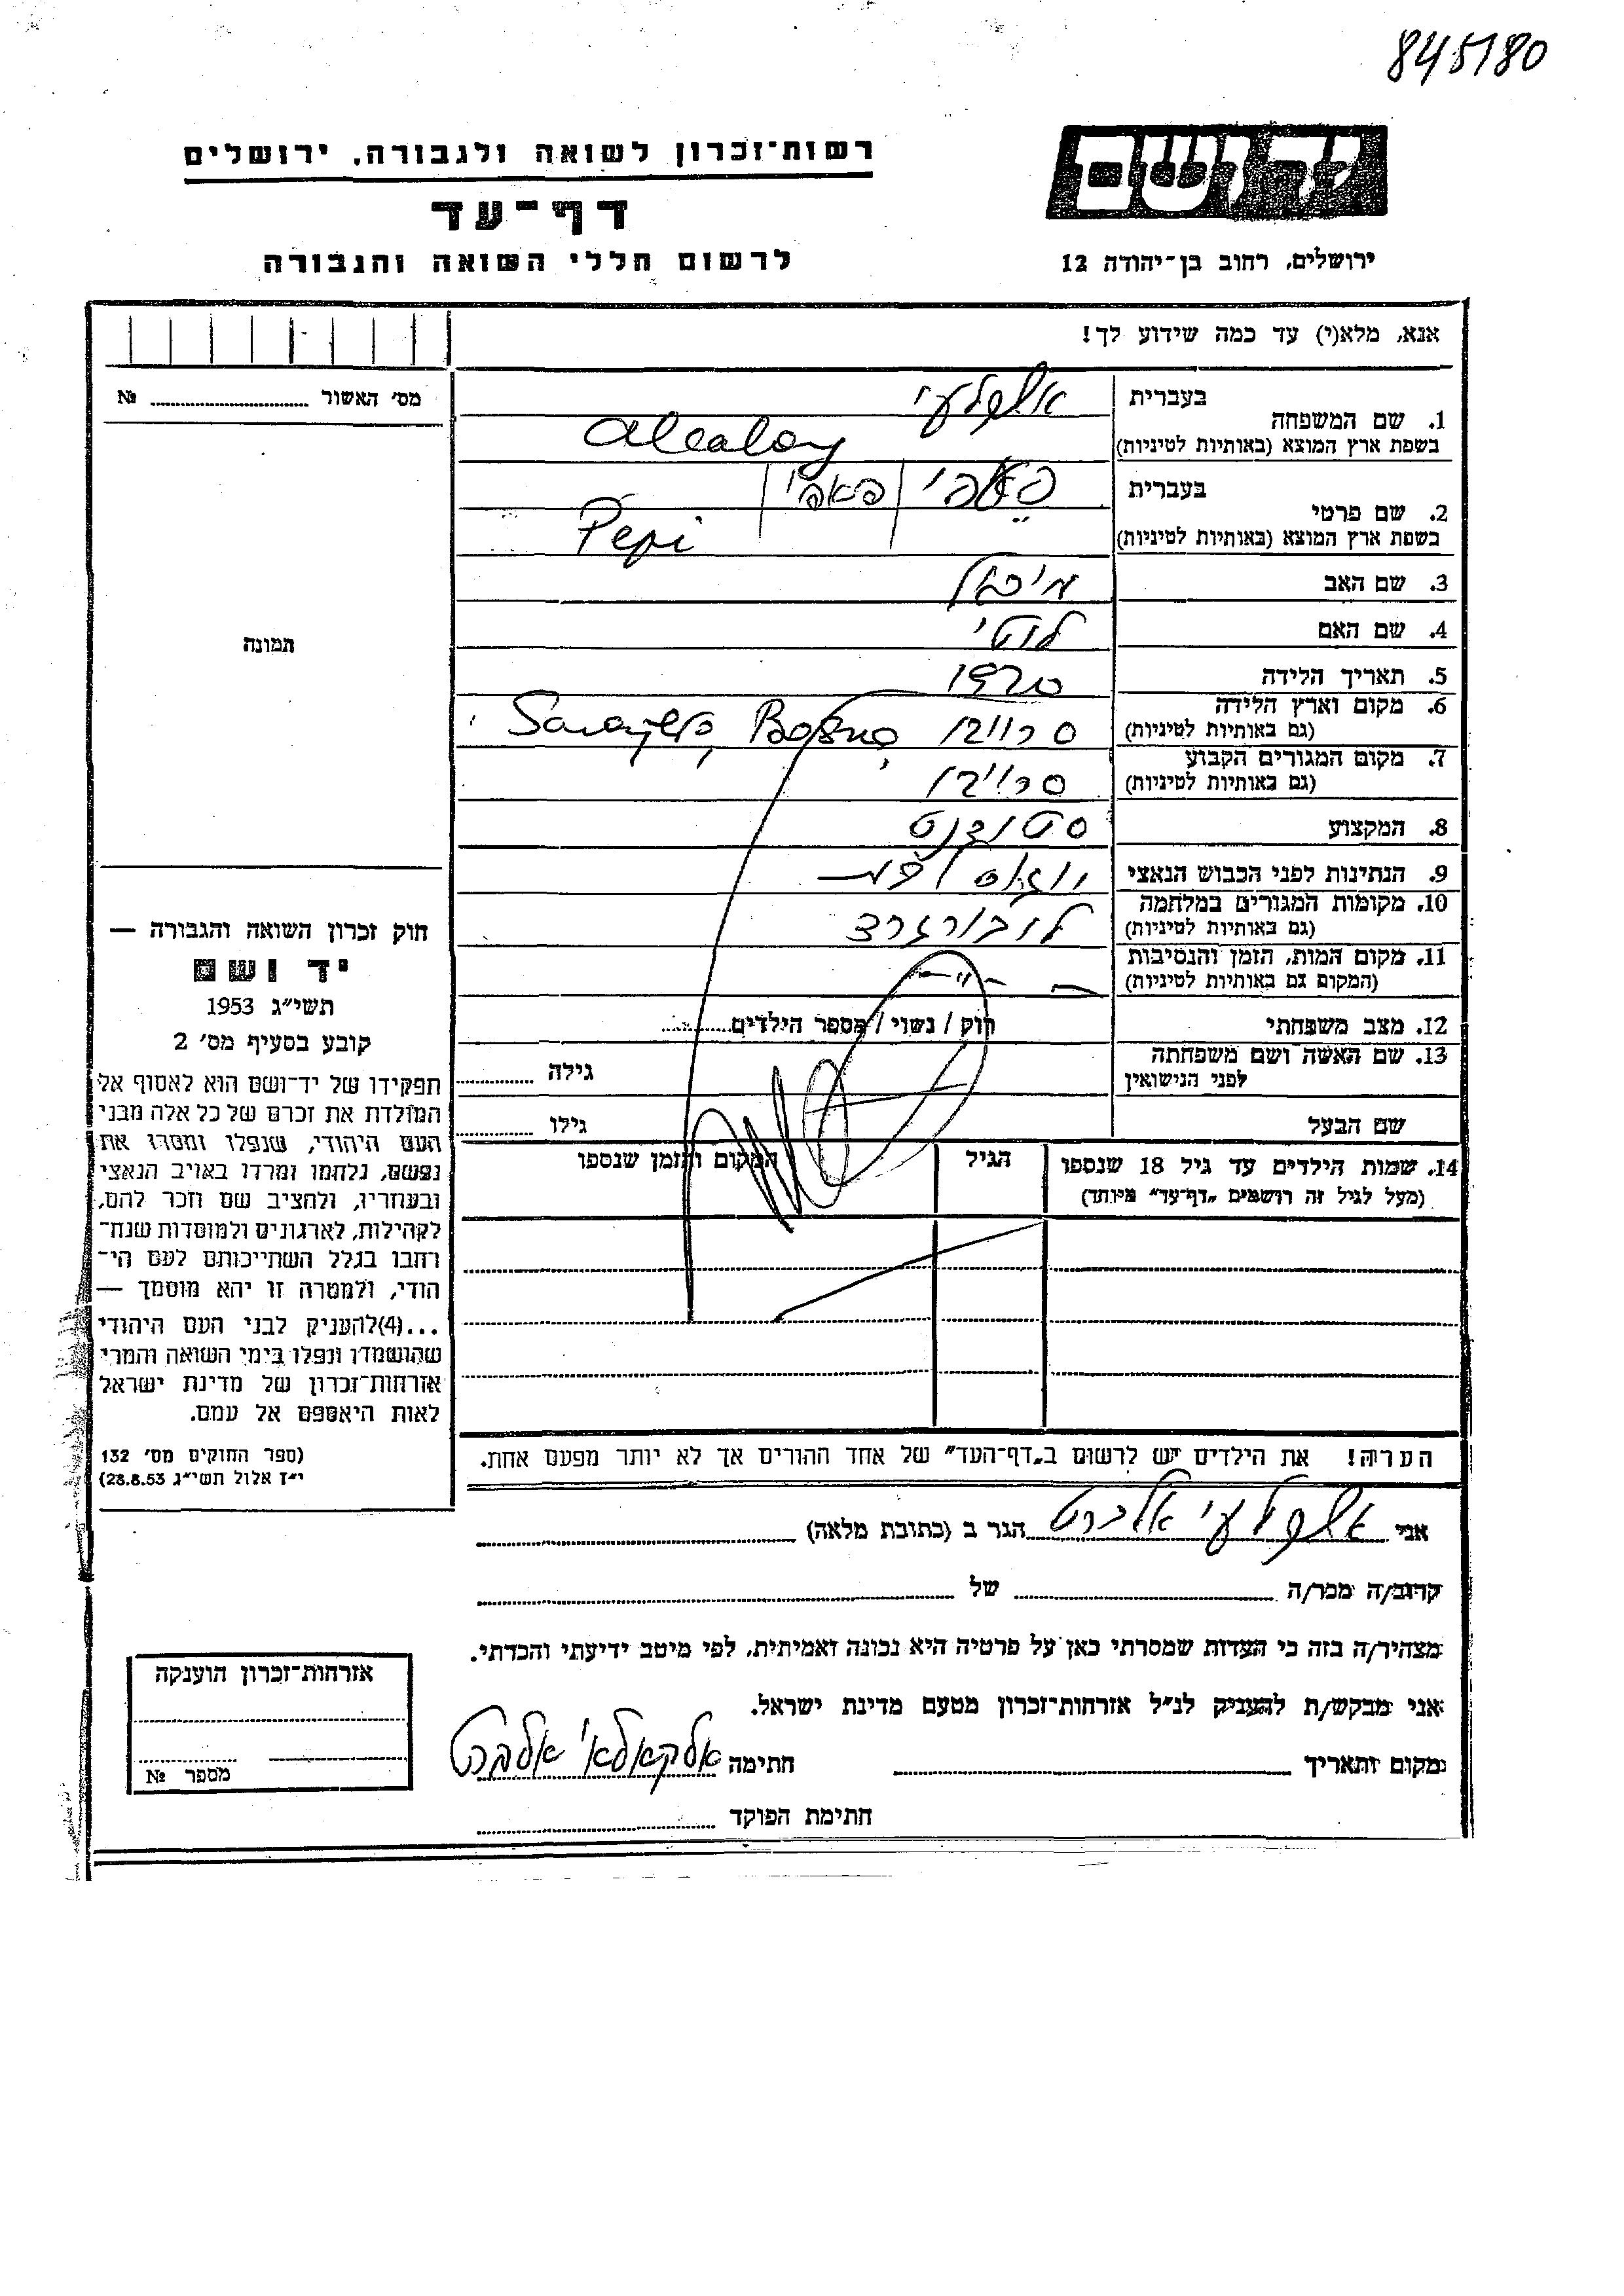 845180
ידושם
ירושלים, רחוב בן-יהודה 12
רשות-זכרון לשואה ולגבורה, ירושלים
דף-עד
לרשום חללי השואה והגבורה
אנא, מלא(י) עד כמה שידוע לך!
1. שם המשפחה
בעברית אלקלעי
בשפת ארץ המוצא (באותיות לטיניות) Alcalay
2. שם פרטי
בעברית פאפי
בשפת ארץ המוצא (באותיות לטיניות) Pepi
3. שם האב מיכאל
4. שם האם לוטי
5. תאריך הלידה 1920
6. מקום וארץ הלידה
(גם באותיות לטיניות) סרייבו Sarajevo
7. מקום המגורים הקבוע
(גם באותיות לטיניות) סרייבו
8. המקצוע סטודנט
9. הנתינות לפני הכבוש הנאצי
10. מקומות המגורים במלחמה
(גם באותיות לטיניות) לובורגרד
11. מקום המות, הזמן והנסיבות
(המקום גם באותיות לטיניות) — " —
12. מצב משפחתי רווק / נשוי / מספר הילדים
13. שם האשה ושם משפחתה
לפני הנישואין גילה
שם הבעל גילו
14. שמות הילדים עד גיל 18 שנספו הגיל המקום והזמן שנספו
(מעל לגיל זה רושמים „דף-עד" מיוחד)
הערה! את הילדים יש לרשום ב„דף-העד" של אחד ההורים אך לא יותר מפעם אחת.
מס' האשור №
תמונה
חוק זכרון השואה והגבורה —
יד ושם
תשי"ג 1953
קובע בסעיף מס' 2
תפקידו של יד-ושם הוא לאסוף אל
המולדת את זכרם של כל אלה מבני
העם היהודי, שנפלו ומסרו את
נפשם, נלחמו ומרדו באויב הנאצי
ובעוזריו, ולהציב שם וזכר להם,
לקהילות, לארגונים ולמוסדות שנח-
רחבו בגלל השתייכותם לעם הי-
הודי, ולמטרה זו יהא מוסמך —
...(4)להעניק לבני העם היהודי
שהושמדו ונפלו בימי השואה והמרי
אזרחות-זכרון של מדינת ישראל
לאות היאספם אל עמם.
(ספר החוקים מס' 132
י"ז אלול תשי"ג 28.8.53)
אני אלקלעי אלברט הגר ב (כתובת מלאה)
קרוב/ה מכר/ה של
מצהיר/ה בזה כי העדות שמסרתי כאן על פרטיה היא נכונה ואמיתית, לפי מיטב ידיעתי והכרתי.
אני מבקש/ת להעניק לנ"ל אזרחות-זכרון מטעם מדינת ישראל.
מקום ותאריך חתימה אלקאלאי אלברט
חתימת הפוקד
אזרחות-זכרון הוענקה
מספר №